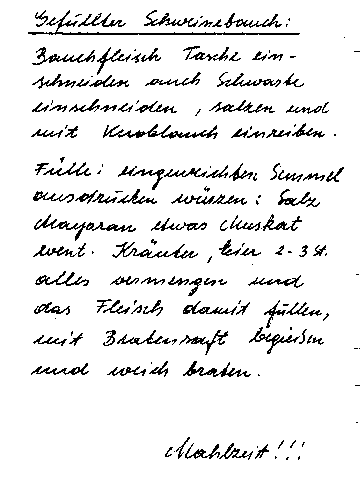 Gefüllter Schweinebauch:
Bauchfleisch Tasche ein-
schneiden auch Schwarte
einschneiden, salzen und
mit Knoblauch einreiben.
Fülle: eingeweichten Semmel
ausdrücken würzen: Salz
Mayoran etwas Muskat
event. Kräuter, Eier 2-3 St.
alles vermengen und
das Fleisch damit füllen,
mit Bratensaft begießen
und weich braten.
Mahlzeit!!!